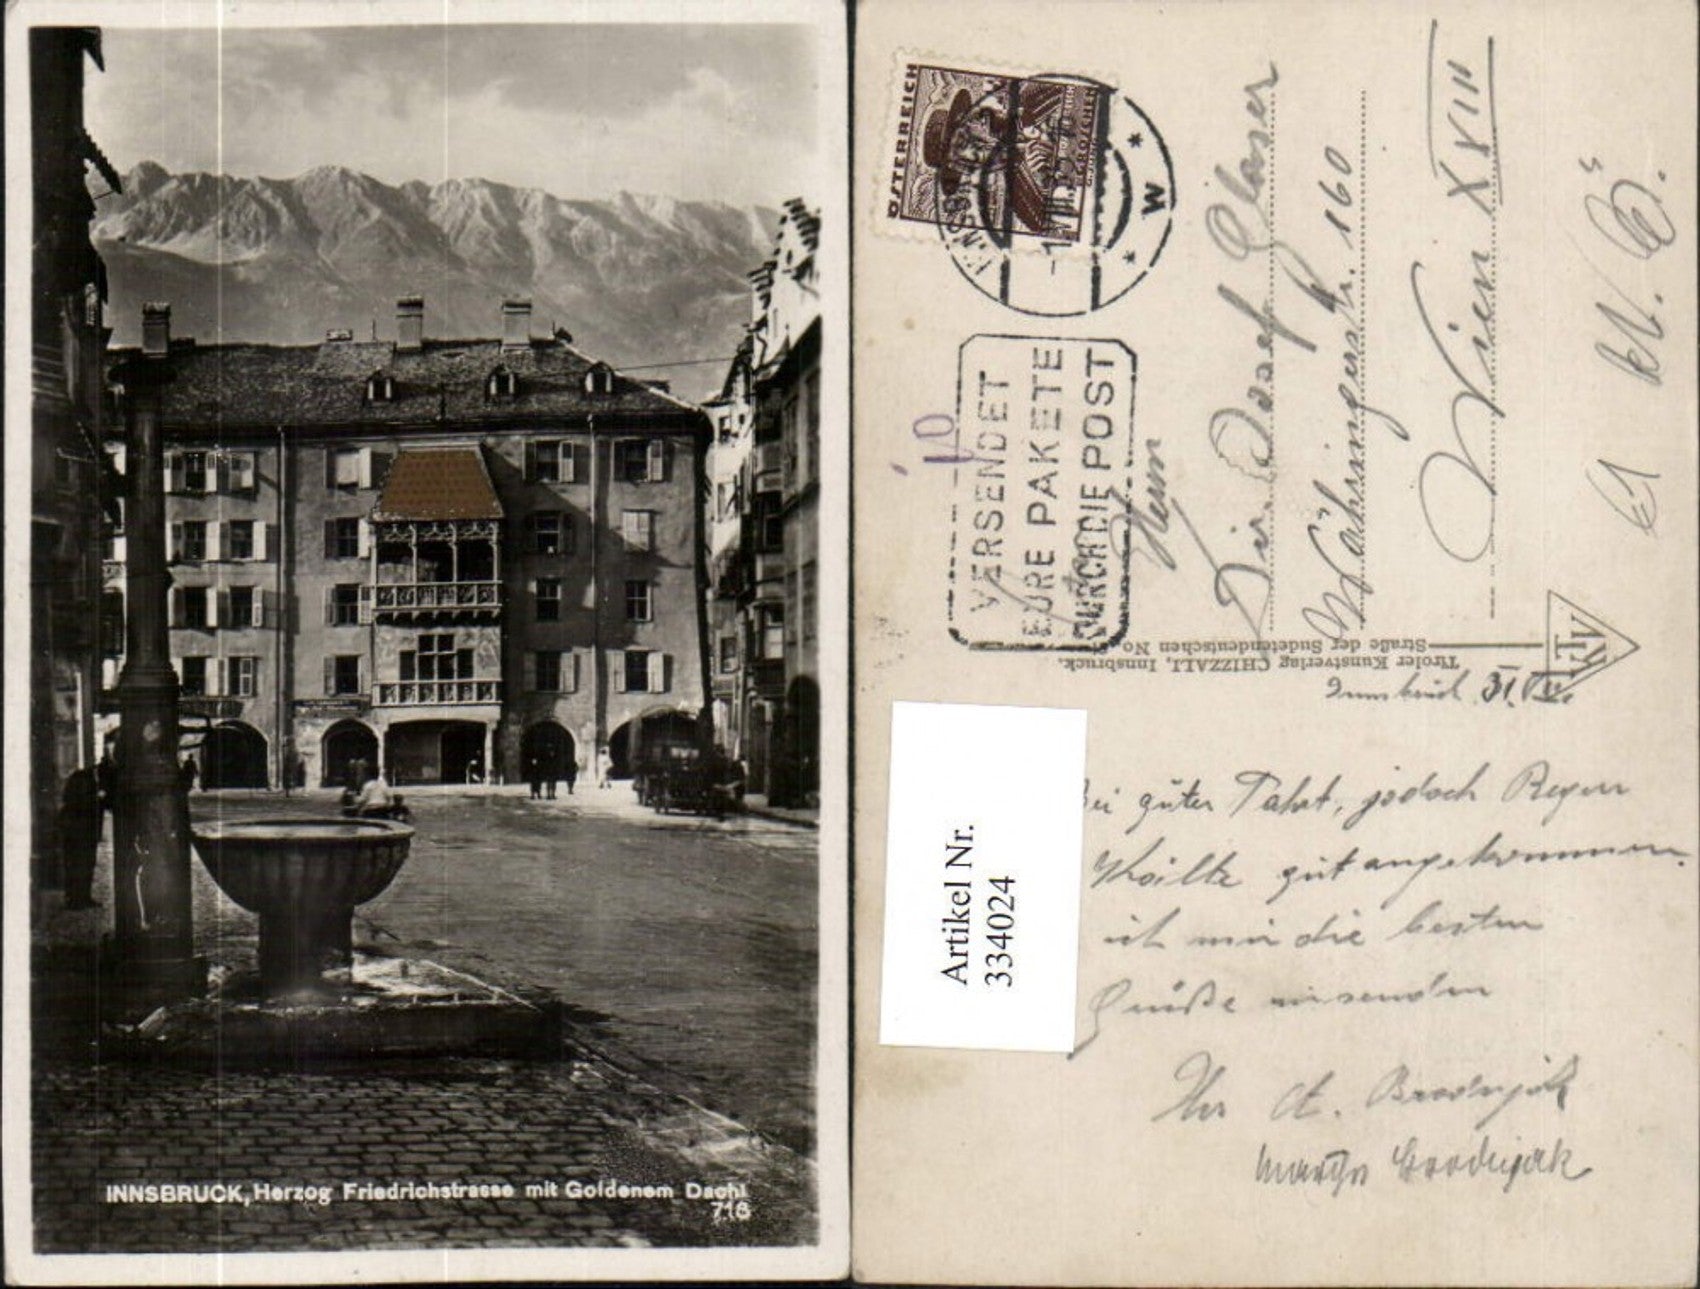 INNSBRUCK, Herzog Friedrichstrasse mit Goldenem Dachl
718
ÖSTERREICH
GROSCHEN
VERSENDET
EURE PAKETE
DURCH DIE POST
W
10
Herrn
Dir. Josef Glaser
Währingerstr. 160
Wien XVIII
Tiroler Kunstverlag CHIZZALI, Innsbruck,
Straße der Sudetendeutschen No.
KTV
Artikel Nr.
334024
Innsbruck 31. VII.
Bei guter Fahrt, jedoch Regen
Kälte gut angekommen.
ich mir die besten
Grüße zu senden
Ihr A.